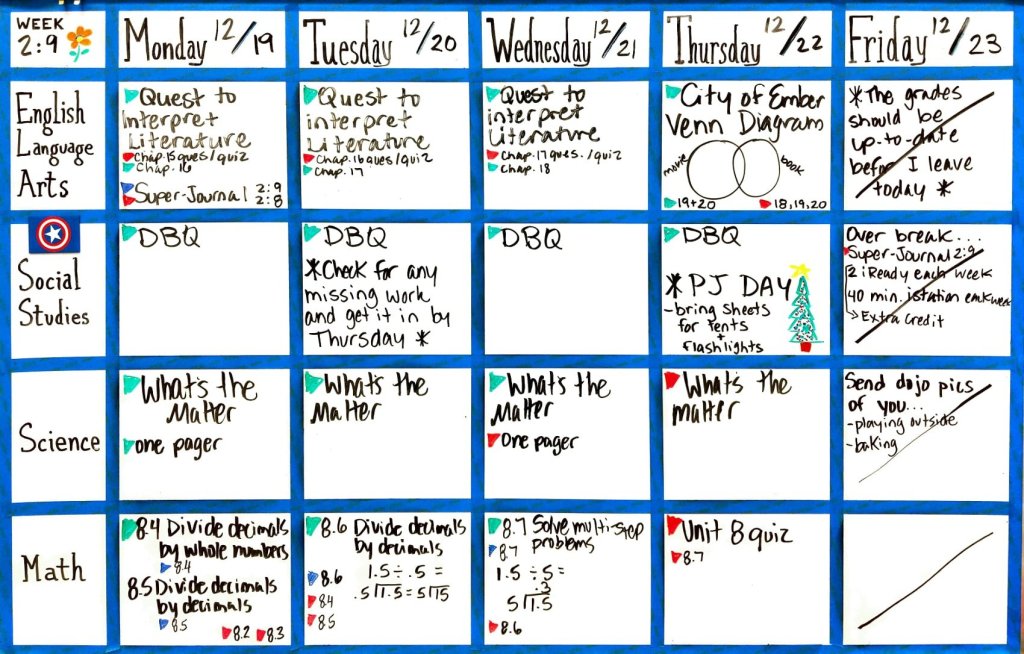 WEEK
2:9
Monday 12/19
Tuesday 12/20
Wednesday 12/21
Thursday 12/22
Friday 12/23
English
Language
Arts
Quest to
Interpret
Literature
Chap. 15 ques/quiz
Chap. 16
Super-Journal 2:9
2:8
Quest to
interpret
Literature
Chap. 16 ques/quiz
Chap. 17
Quest to
interpret
Literature
Chap. 17 ques./quiz
Chap. 18
City of Ember
Venn Diagram
movie
book
19+20
18,19,20
*The grades
should be
up-to-date
before I leave
today *
Social
Studies
DBQ
DBQ
*Check for any
missing work
and get it in by
Thursday *
DBQ
DBQ
*PJ DAY
-bring sheets
for tents
+
flashlights
Over break...
Super-Journal 2:9
2 iReady each week
40 min. istation each week
Extra credit
Science
What's the
Matter
one pager
What's the
Matter
What's the
Matter
One pager
What's the
matter
Send dojo pics
of you...
-playing outside
-baking
Math
8.4 Divide decimals
by whole numbers
8.4
8.5 Divide decimals
by decimals
8.5
8.2 8.3
8.6 Divide decimals
by decimals
8.6
1.5 ÷ .5 =
.5⟌1.5 = 5⟌15
8.4
8.5
8.7 Solve multi-step
problems
8.7
1.5 ÷ 5 =
.3
5⟌1.5
8.6
Unit 8 quiz
8.7